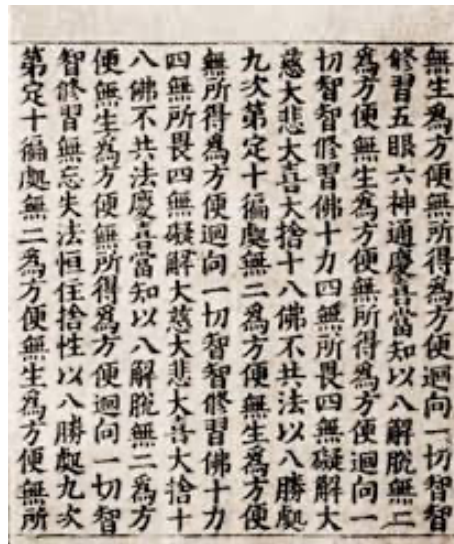 無生爲方便無所得爲方便迴向一切智智
修習五眼六神通慶喜當知以八解脫無二
爲方便無生爲方便無所得爲方便迴向一
切智智修習佛十力四無所畏四無礙解大
慈大悲大喜大捨十八佛不共法以八勝處
九次第定十徧處無二爲方便無生爲方便
無所得爲方便迴向一切智智修習佛十力
四無所畏四無礙解大慈大悲大喜大捨十
八佛不共法慶喜當知以八解脫無二爲方
便無生爲方便無所得爲方便迴向一切智
智修習無忘失法恒住捨性以八勝處九次
第定十徧處無二爲方便無生爲方便無所